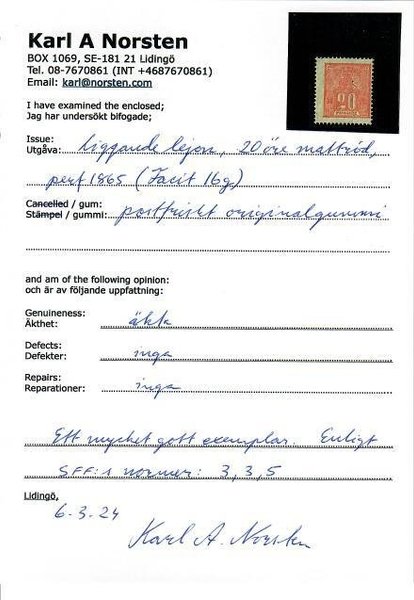 Karl A Norsten
BOX 1069, SE-181 21 Lidingö
Tel. 08-7670861 (INT +4687670861)
Email: karl@norsten.com
20
I have examined the enclosed;
Jag har undersökt bifogade;
Issue:
Utgåva: Liggande lejon, 20 öre mattröd,
perf 1865 (Facit 16g)
Cancelled / gum:
Stämpel / gummi: postfriskt originalgummi
and am of the following opinion:
och är av följande uppfattning:
Genuineness:
Äkthet: äkta
Defects:
Defekter: inga
Repairs:
Reparationer: inga
Ett mycket gott exemplar. Enligt
SFF:s normer: 3, 3, 5
Lidingö,
6.3.24
Karl A. Norsten